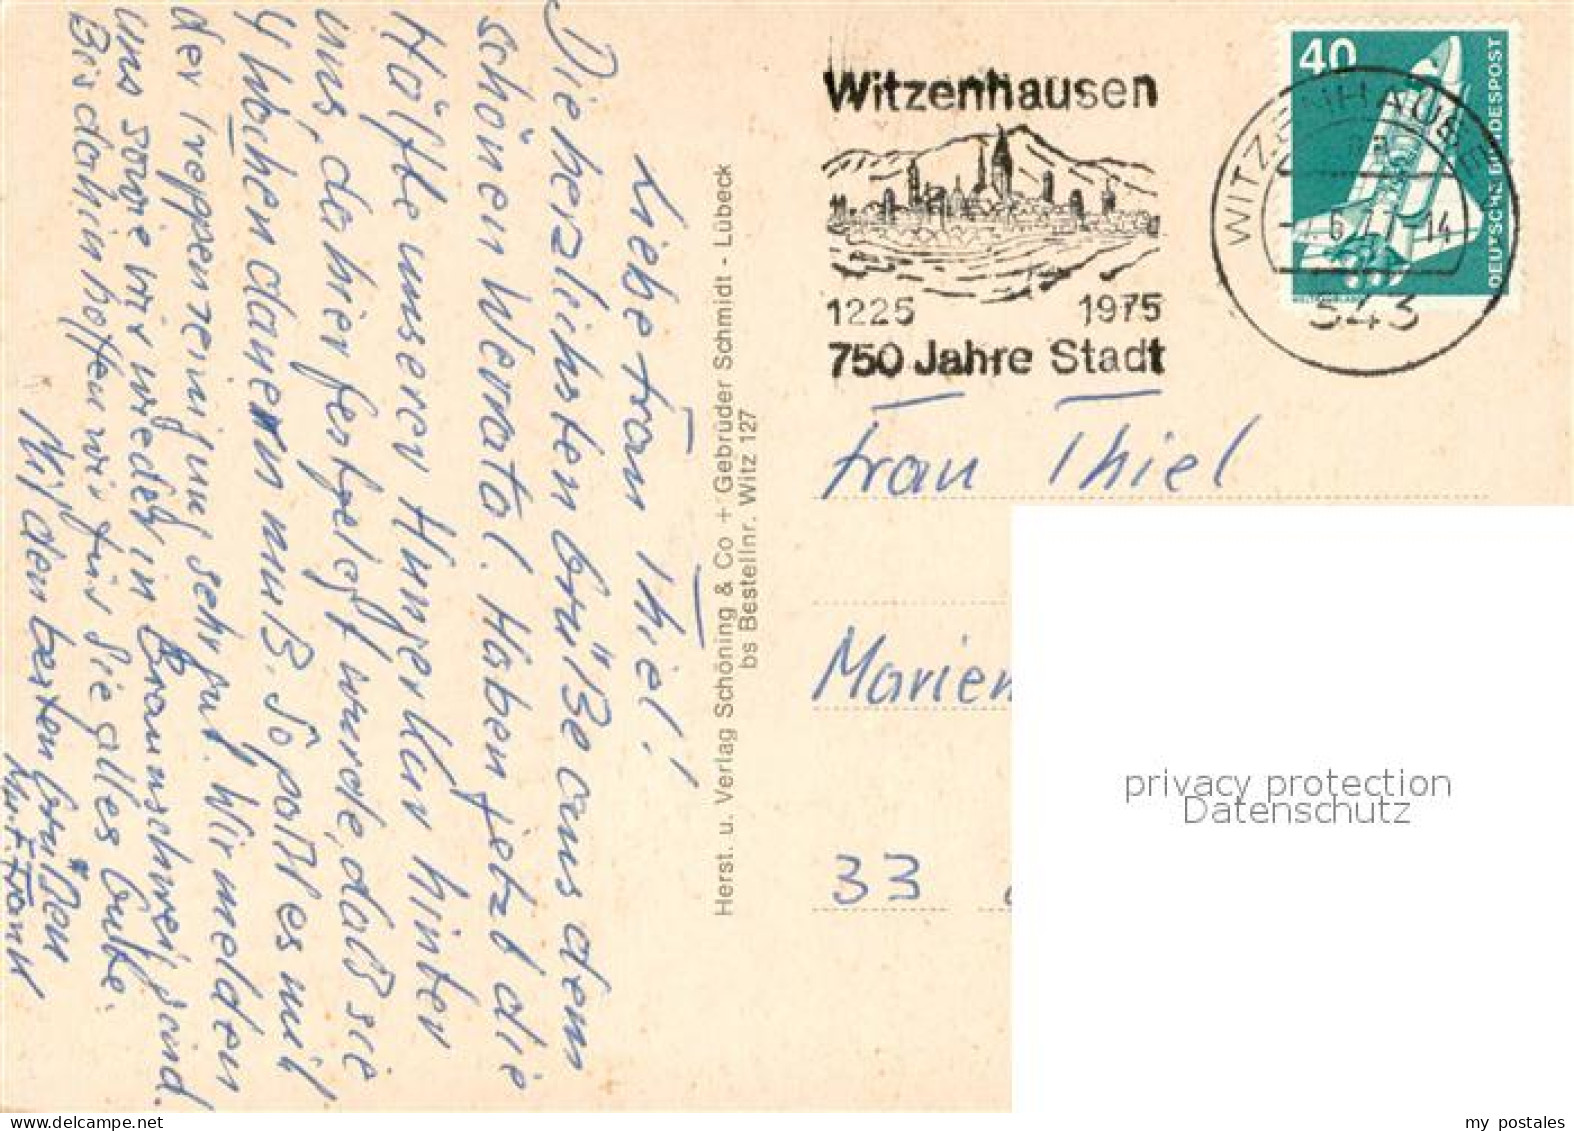 Liebe Frau Thiel!
Die herzlichsten Grüße aus dem
schönen Werratal. Haben jetzt die
Hälfte unserer Hungerkur hinter
uns, da hier festgelegt wurde, daß sie
4 Wochen dauern muß. So paßt es mit
der Treppenreinigung sehr gut. Wir melden
uns sowie wir wieder in Braunschweig sind.
Bis dahin hoffen wir für Sie alles Gute.
Mit den besten Grüßen
Frank
Herst. u. Verlag Schöning & Co + Gebrüder Schmidt - Lübeck
bs Bestellnr. Witz 127
Witzenhausen
1225 1975
750 Jahre Stadt
40
DEUTSCHE BUNDESPOST
WITZENHAUSE
6.77-14
343
Frau Thiel
Marien
33
privacy protection
Datenschutz
my postales